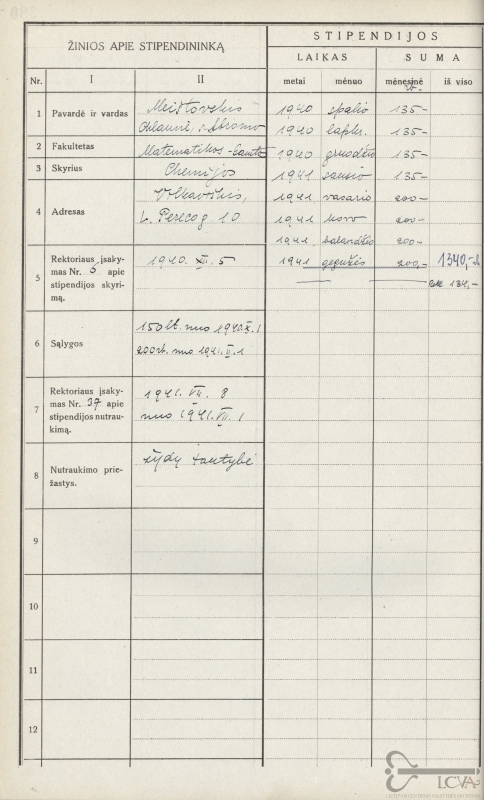 STIPENDIJOS
ŽINIOS APIE STIPENDININKĄ
LAIKAS SUMA
Nr. I II metai mėnuo mėnesinė iš viso
1 Pavardė ir vardas 1940 spalio 135–
1940 lapkr. 135–
2 Fakultetas Matematikos-Gamtos 1940 gruodžio 135–
3 Skyrius Chemijos 1941 sausio 135–
4 Adresas Vilkaviškis, 1941 vasario 200–
L. Pereco g. 10 1941 kovo 200–
1941 balandžio 200–
5 Rektoriaus įsakymas Nr. 5 apie stipendijos skyrimą. 1940. XII. 5 1941 gegužės 200,– 1340,–
134,–
6 Sąlygos 150 lt. nuo 1940.X.1
200 rb. nuo 1941.II.1
7 Rektoriaus įsakymas Nr. 37 apie stipendijos nutraukimą. 1941. VII. 8
nuo 1941.VII.1
8 Nutraukimo priežastys. žydų tautybė
9
10
11
12
LCVA